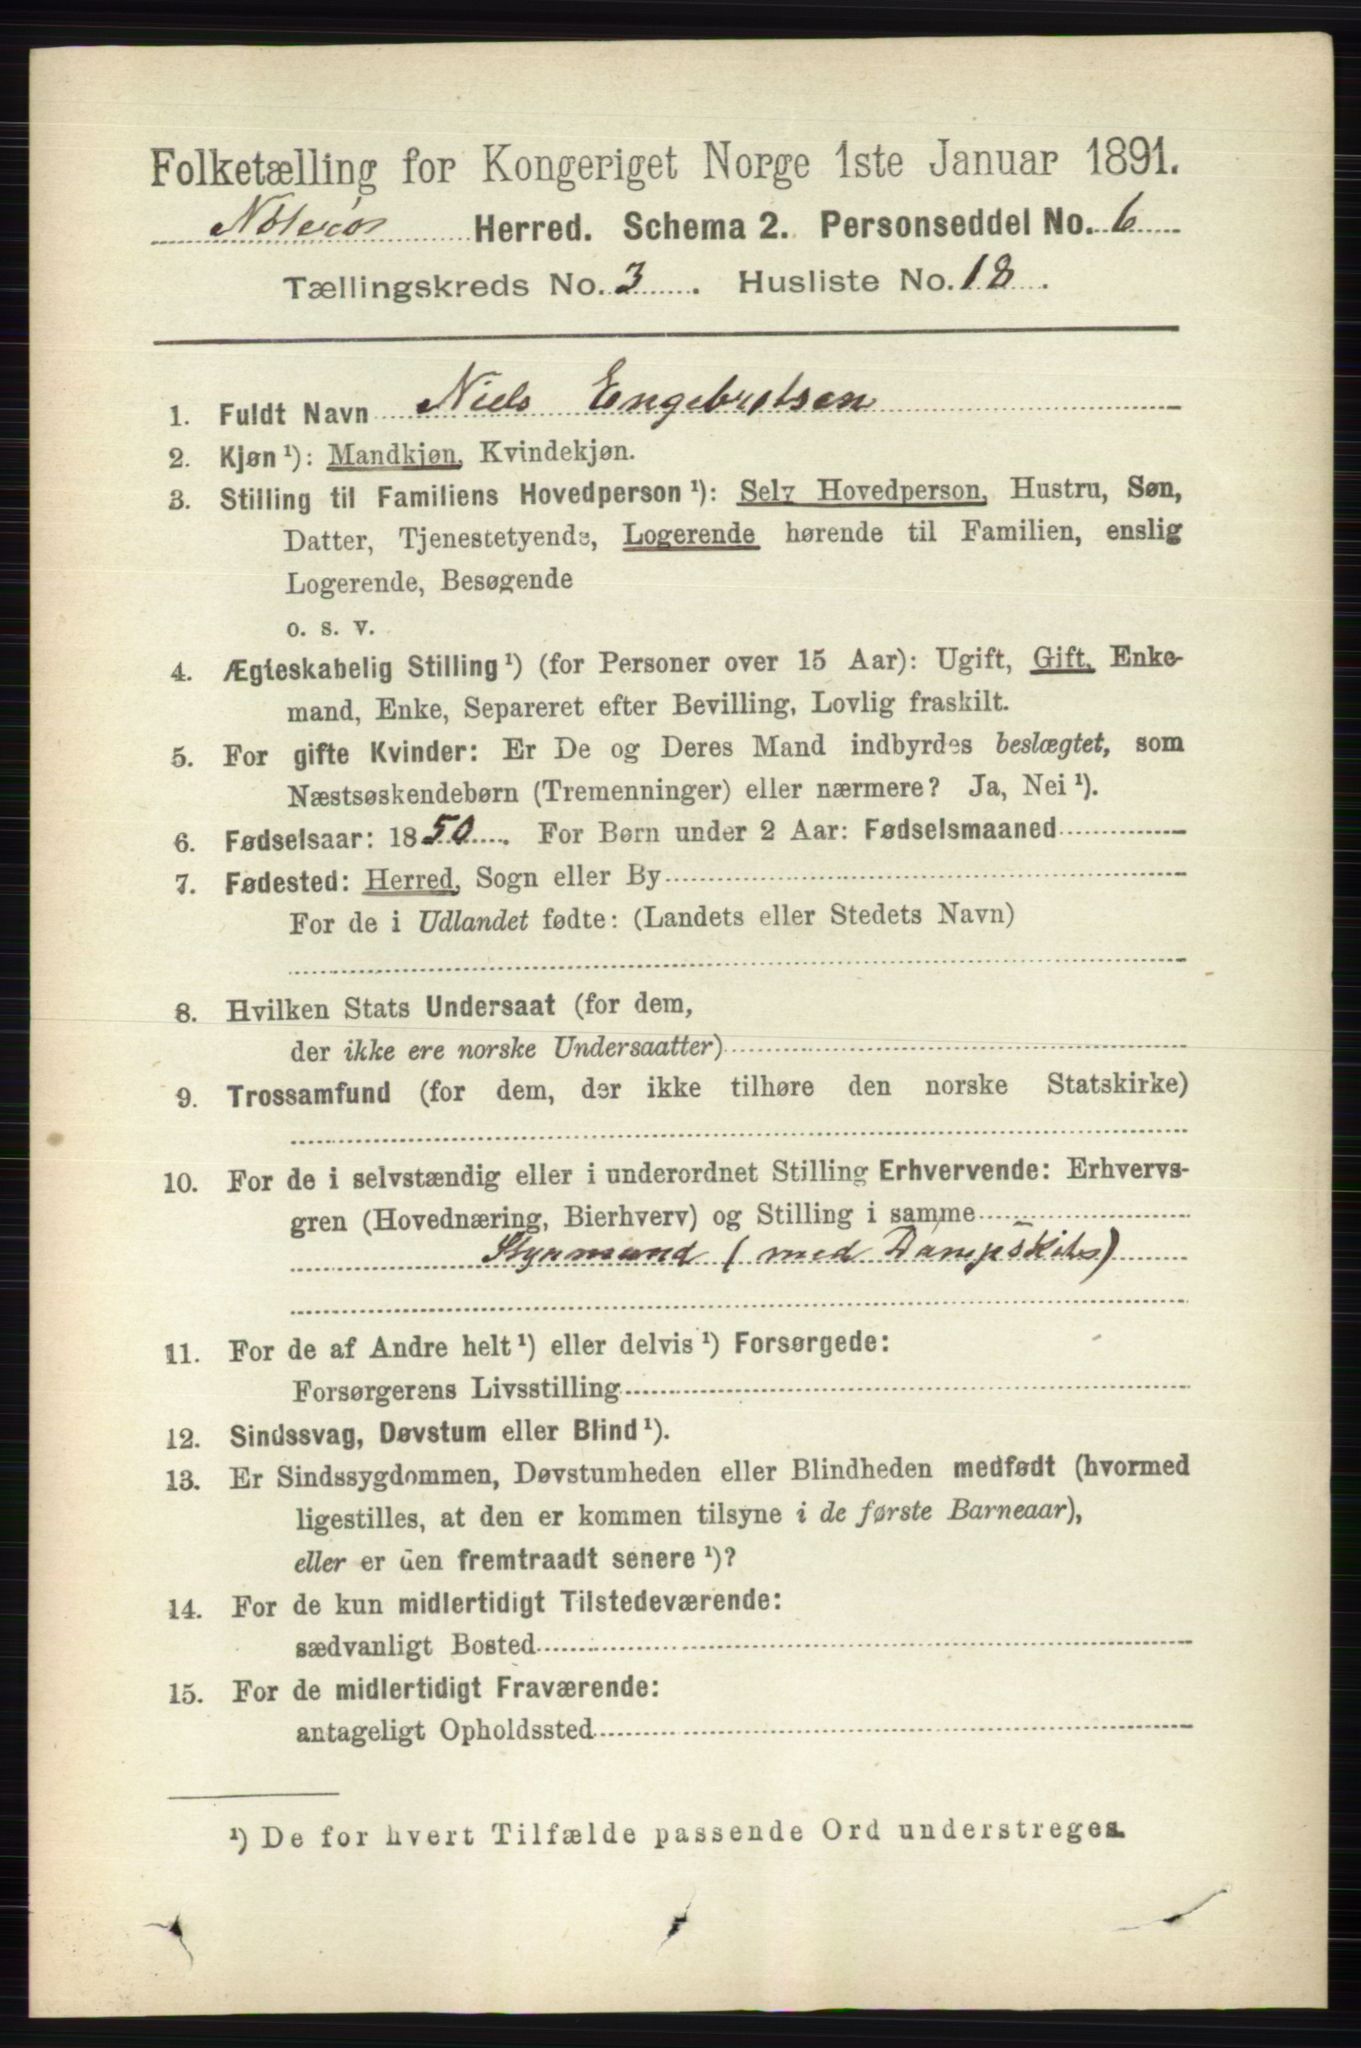 Folketælling for Kongeriget Norge 1ste Januar 1891.
Nøterø Herred. Schema 2. Personseddel No. 6
Tællingskreds No. 3. Husliste No. 18.
1. Fuldt Navn Niels Engebretsen
2. Kjøn¹): Mandkjøn, Kvindekjøn.
3. Stilling til Familiens Hovedperson¹): Selv Hovedperson, Hustru, Søn,
Datter, Tjenestetyende, Logerende hørende til Familien, enslig
Logerende, Besøgende
o. s. v.
4. Ægteskabelig Stilling¹) (for Personer over 15 Aar): Ugift, Gift, Enke-
mand, Enke, Separeret efter Bevilling, Lovlig fraskilt.
5. For gifte Kvinder: Er De og Deres Mand indbyrdes beslægtet, som
Næstsøskendebørn (Tremenninger) eller nærmere? Ja, Nei¹).
6. Fødselsaar: 1850. For Børn under 2 Aar: Fødselsmaaned
7. Fødested: Herred, Sogn eller By
For de i Udlandet fødte: (Landets eller Stedets Navn)
8. Hvilken Stats Undersaat (for dem,
der ikke ere norske Undersaatter)
9. Trossamfund (for dem, der ikke tilhøre den norske Statskirke)
10. For de i selvstændig eller i underordnet Stilling Erhvervende: Erhvervs-
gren (Hovednæring, Bierhverv) og Stilling i samme
Styrmand (med Dampskibs)
11. For de af Andre helt¹) eller delvis¹) Forsørgede:
Forsørgerens Livsstilling
12. Sindssvag, Døvstum eller Blind¹).
13. Er Sindssygdommen, Døvstumheden eller Blindheden medfødt (hvormed
ligestilles, at den er kommen tilsyne i de første Barneaar),
eller er den fremtraadt senere¹)?
14. For de kun midlertidigt Tilstedeværende:
sædvanligt Bosted
15. For de midlertidigt Fraværende:
antageligt Opholdssted
¹) De for hvert Tilfælde passende Ord understreges.